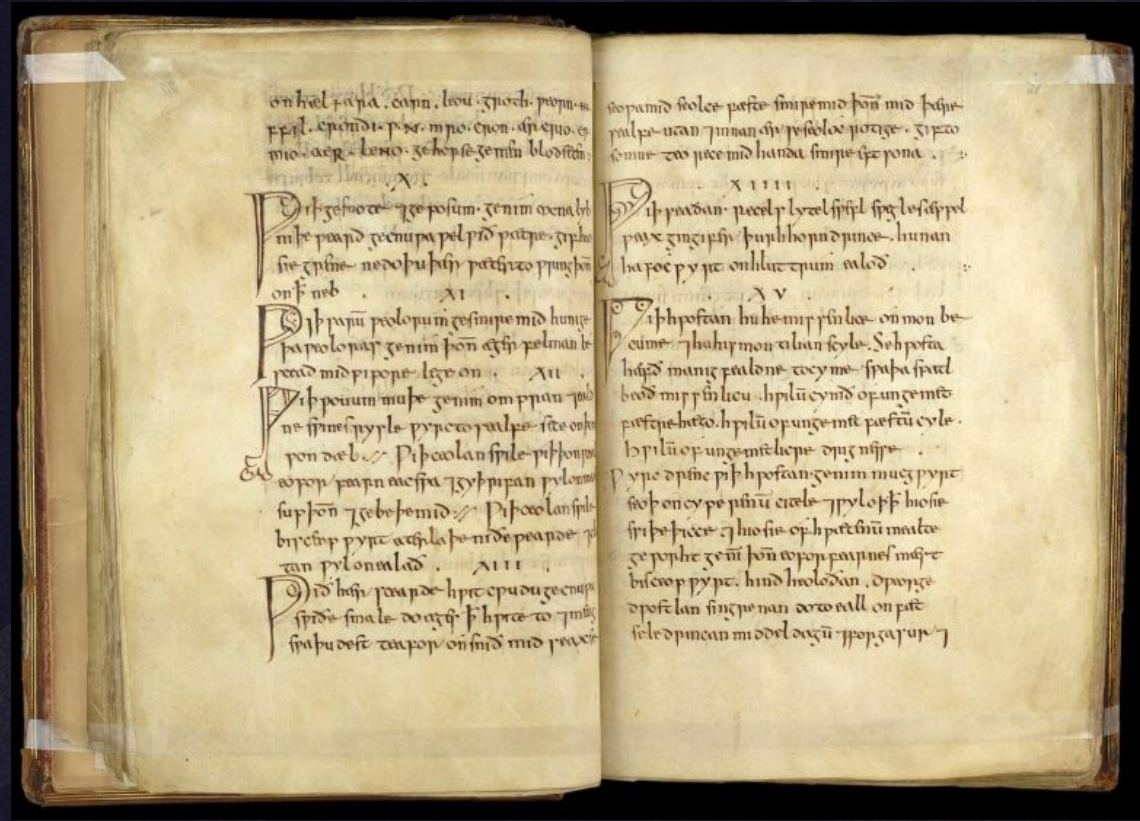 on hæl + ara . carn . leou . groth . weorn .
ffil . crondi . p . X . mro . cron . ær crio . er
mio . aeR . leNO . ge horse ge men blodseten :
. X .
Wiþ gesnote ⁊ geposum . genim oxna lyb
niþe weard gecnuwa wel wið wætre . gif he
sie grene ne do þu þær wæter to wring þoñ
on þ̄ neb .
. XI .
Wiþ sarū weolorum gesmire mid hunige
þa weoloras genim þoñ æger felman be
scead mid pipore lege on .
XII .
Wiþ woum muþe genim ompran ⁊ eald
ne swines rysle wyrc to sealfe sete on þon
won dæl . Wiþ ceolan swile wiþ þon
eofor fearn eac swa ⁊ gyþrifan wyl on
sup þoñ ⁊ gebeþe mid . Wiþ ceolan swile
bisceop wyrt niðe wearde
tan wyl on ealað .
XIII
Wið hær scearde hwit cwudu gecnuwa
swiðe smale do æges þ̄ hwite to ⁊ meng
swa þu dest teafor onsnið mid seaxe
seowa mid seolce fæste smire mid þoñ mid þære
sealfe utan ⁊ innan ær se seoloc rotige . gif to
somne teo rece mid handa smire eft sona .
XIIII .
Wiþ seadan . recels lytel swefl swegles æppel
weax gingifer þurh horn drince . hunan
hafoc wyrt on hluttrum ealoð
. XV
Wiþ hwostan hu he mis senlice on mon be
cume ⁊ hu his mon tilian scyle . Se hwosta
hæfð manig fealdne tocyme swa þa spatl
beoð mis senlicu . hwilū cymð of ungemet
fæstre hæto . hwilū of ungemet fæstū cyle .
hwilū of ungemetlicre drignesse
Wyrc drenc wiþ hwostan . genim mucg wyrt
seoþ on cyperenū citele ⁊ wyl oþþ hio sie
swiþe þicce ⁊ hio sie of hwætenū mealte
geworht geñ þoñ eofor fearnes mæst
bisceop wyrt . hind heoloðan . dweorge
dwostlan singrenan do to eall on fæt
sele drincan middel dagū ⁊ forga sur ⁊